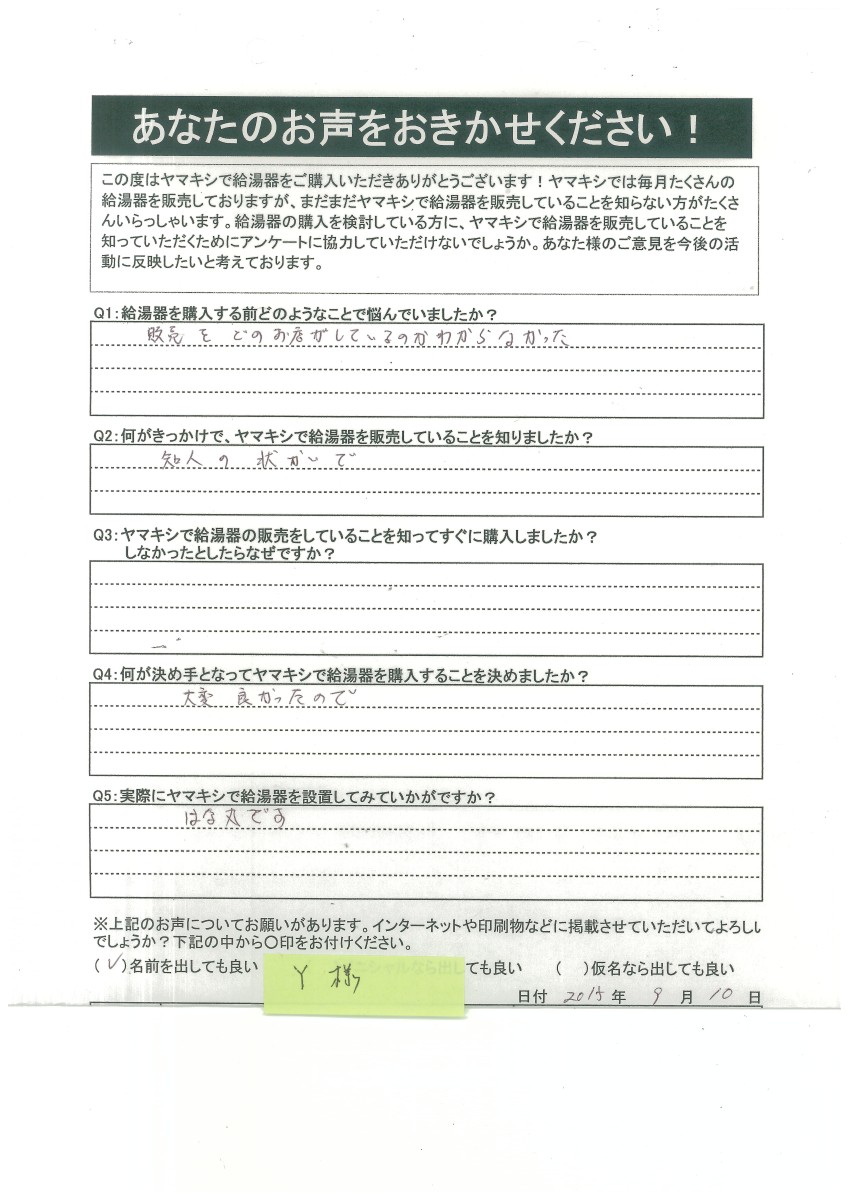 あなたのお声をおきかせください！
この度はヤマキシで給湯器をご購入いただきありがとうございます！ヤマキシでは毎月たくさんの
給湯器を販売しておりますが、まだまだヤマキシで給湯器を販売していることを知らない方がたくさ
んいらっしゃいます。給湯器の購入を検討している方に、ヤマキシで給湯器を販売していることを
知っていただくためにアンケートに協力していただけないでしょうか。あなた様のご意見を今後の活
動に反映したいと考えております。
Q1：給湯器を購入する前どのようなことで悩んでいましたか？
販売をどのお店がしているのかわからなかった
Q2：何がきっかけで、ヤマキシで給湯器を販売していることを知りましたか？
知人の
Q3：ヤマキシで給湯器の販売をしていることを知ってすぐに購入しましたか？
しなかったとしたらなぜですか？
Q4：何が決め手となってヤマキシで給湯器を購入することを決めましたか？
大変良かったので
Q5：実際にヤマキシで給湯器を設置してみていかがですか？
はな丸です
※上記のお声についてお願いがあります。インターネットや印刷物などに掲載させていただいてよろしい
でしょうか？下記の中から〇印をお付けください。
(✓)名前を出しても良い ニシャルなら出しても良い ( )仮名なら出しても良い
Y 様
日付 2015年 9月 10日